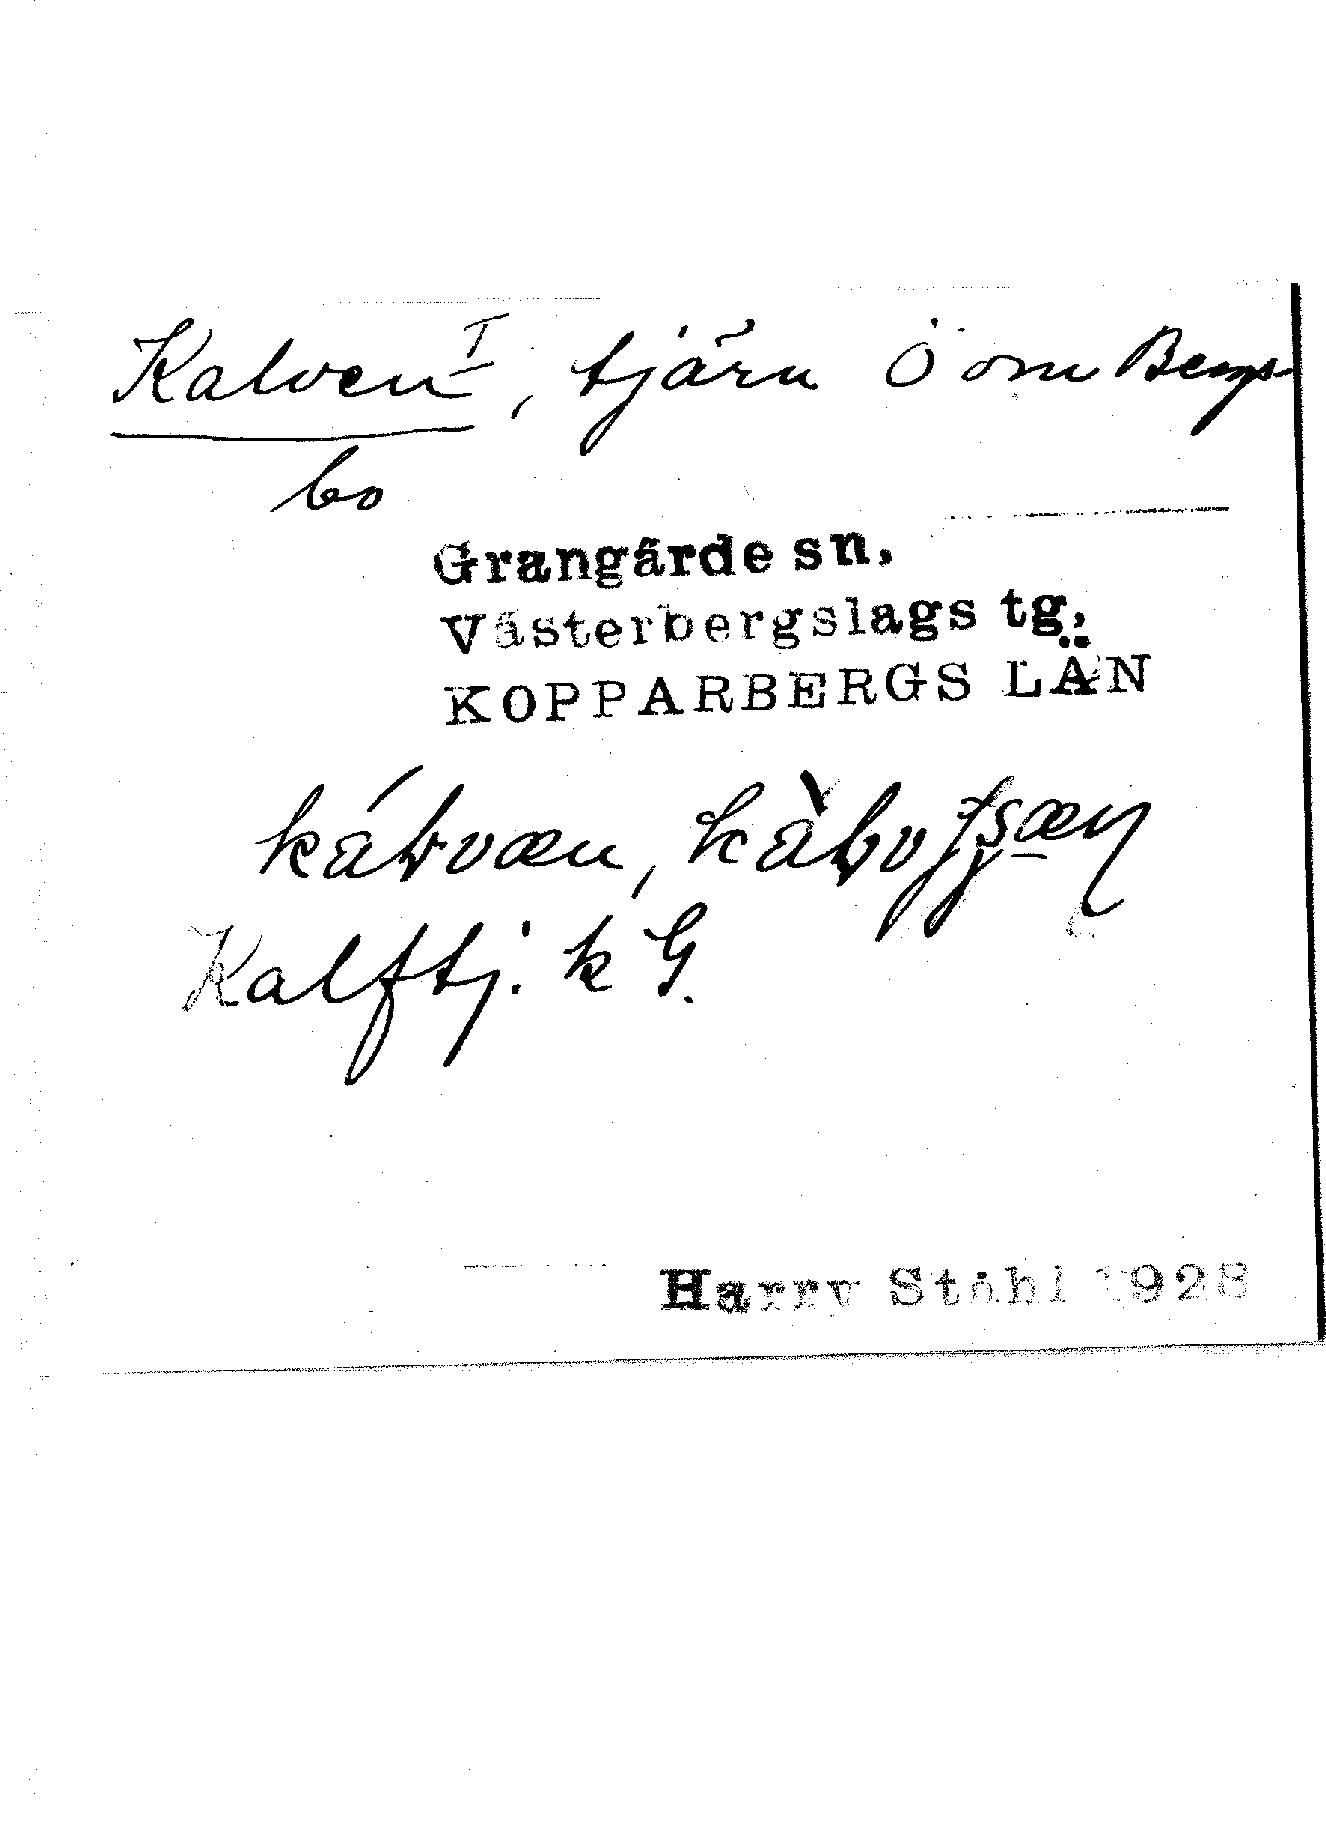 Kalven I, tjärn Ö om Bergs-
bo
Grangärde sn,
Västerbergslags tg,
KOPPARBERGS LÄN
Kalftj. k G.
Harry Ståhl 1928